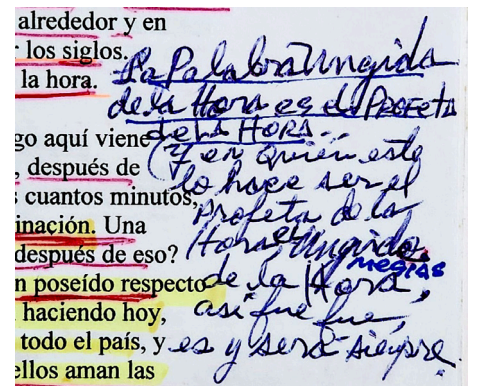 alrededor y en
los siglos.
la hora.
go aquí viene
, después de
cuantos minutos,
inación. Una
después de eso?
n poseído respecto
haciendo hoy,
todo el país, y
ellos aman las
La Palabra Ungida
de la Hora es el PROFETA
DE LA HORA.
(Y en quien este
lo hace ser el
Profeta de la
Hora, el Ungido
MEGIAS
de la Hora,
así fue fue,
es y será siempre.